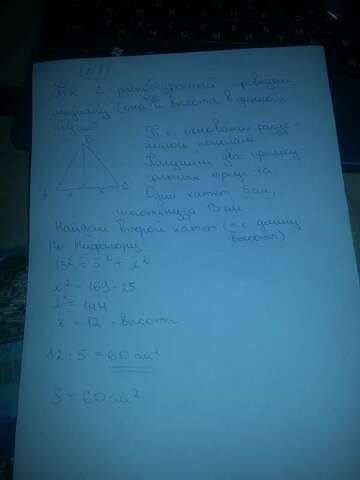 (№1)
Т.к Δ - равнобедренный проведем
медиану (она же и высота в данном
случае)
B
Т.к основание разде-
лилось пополам
Получили два прямоу-
гольных треуг-ка
A
C
Один катет 5 см,
гипотенуза 13 см
Найдем второй катет (т.е длину
высоты)
По Пифагору:
13² = 5² + x²
x² = 169 - 25
x² = 144
x = 12 - высота
12 · 5 = 60 см²
S = 60 см²